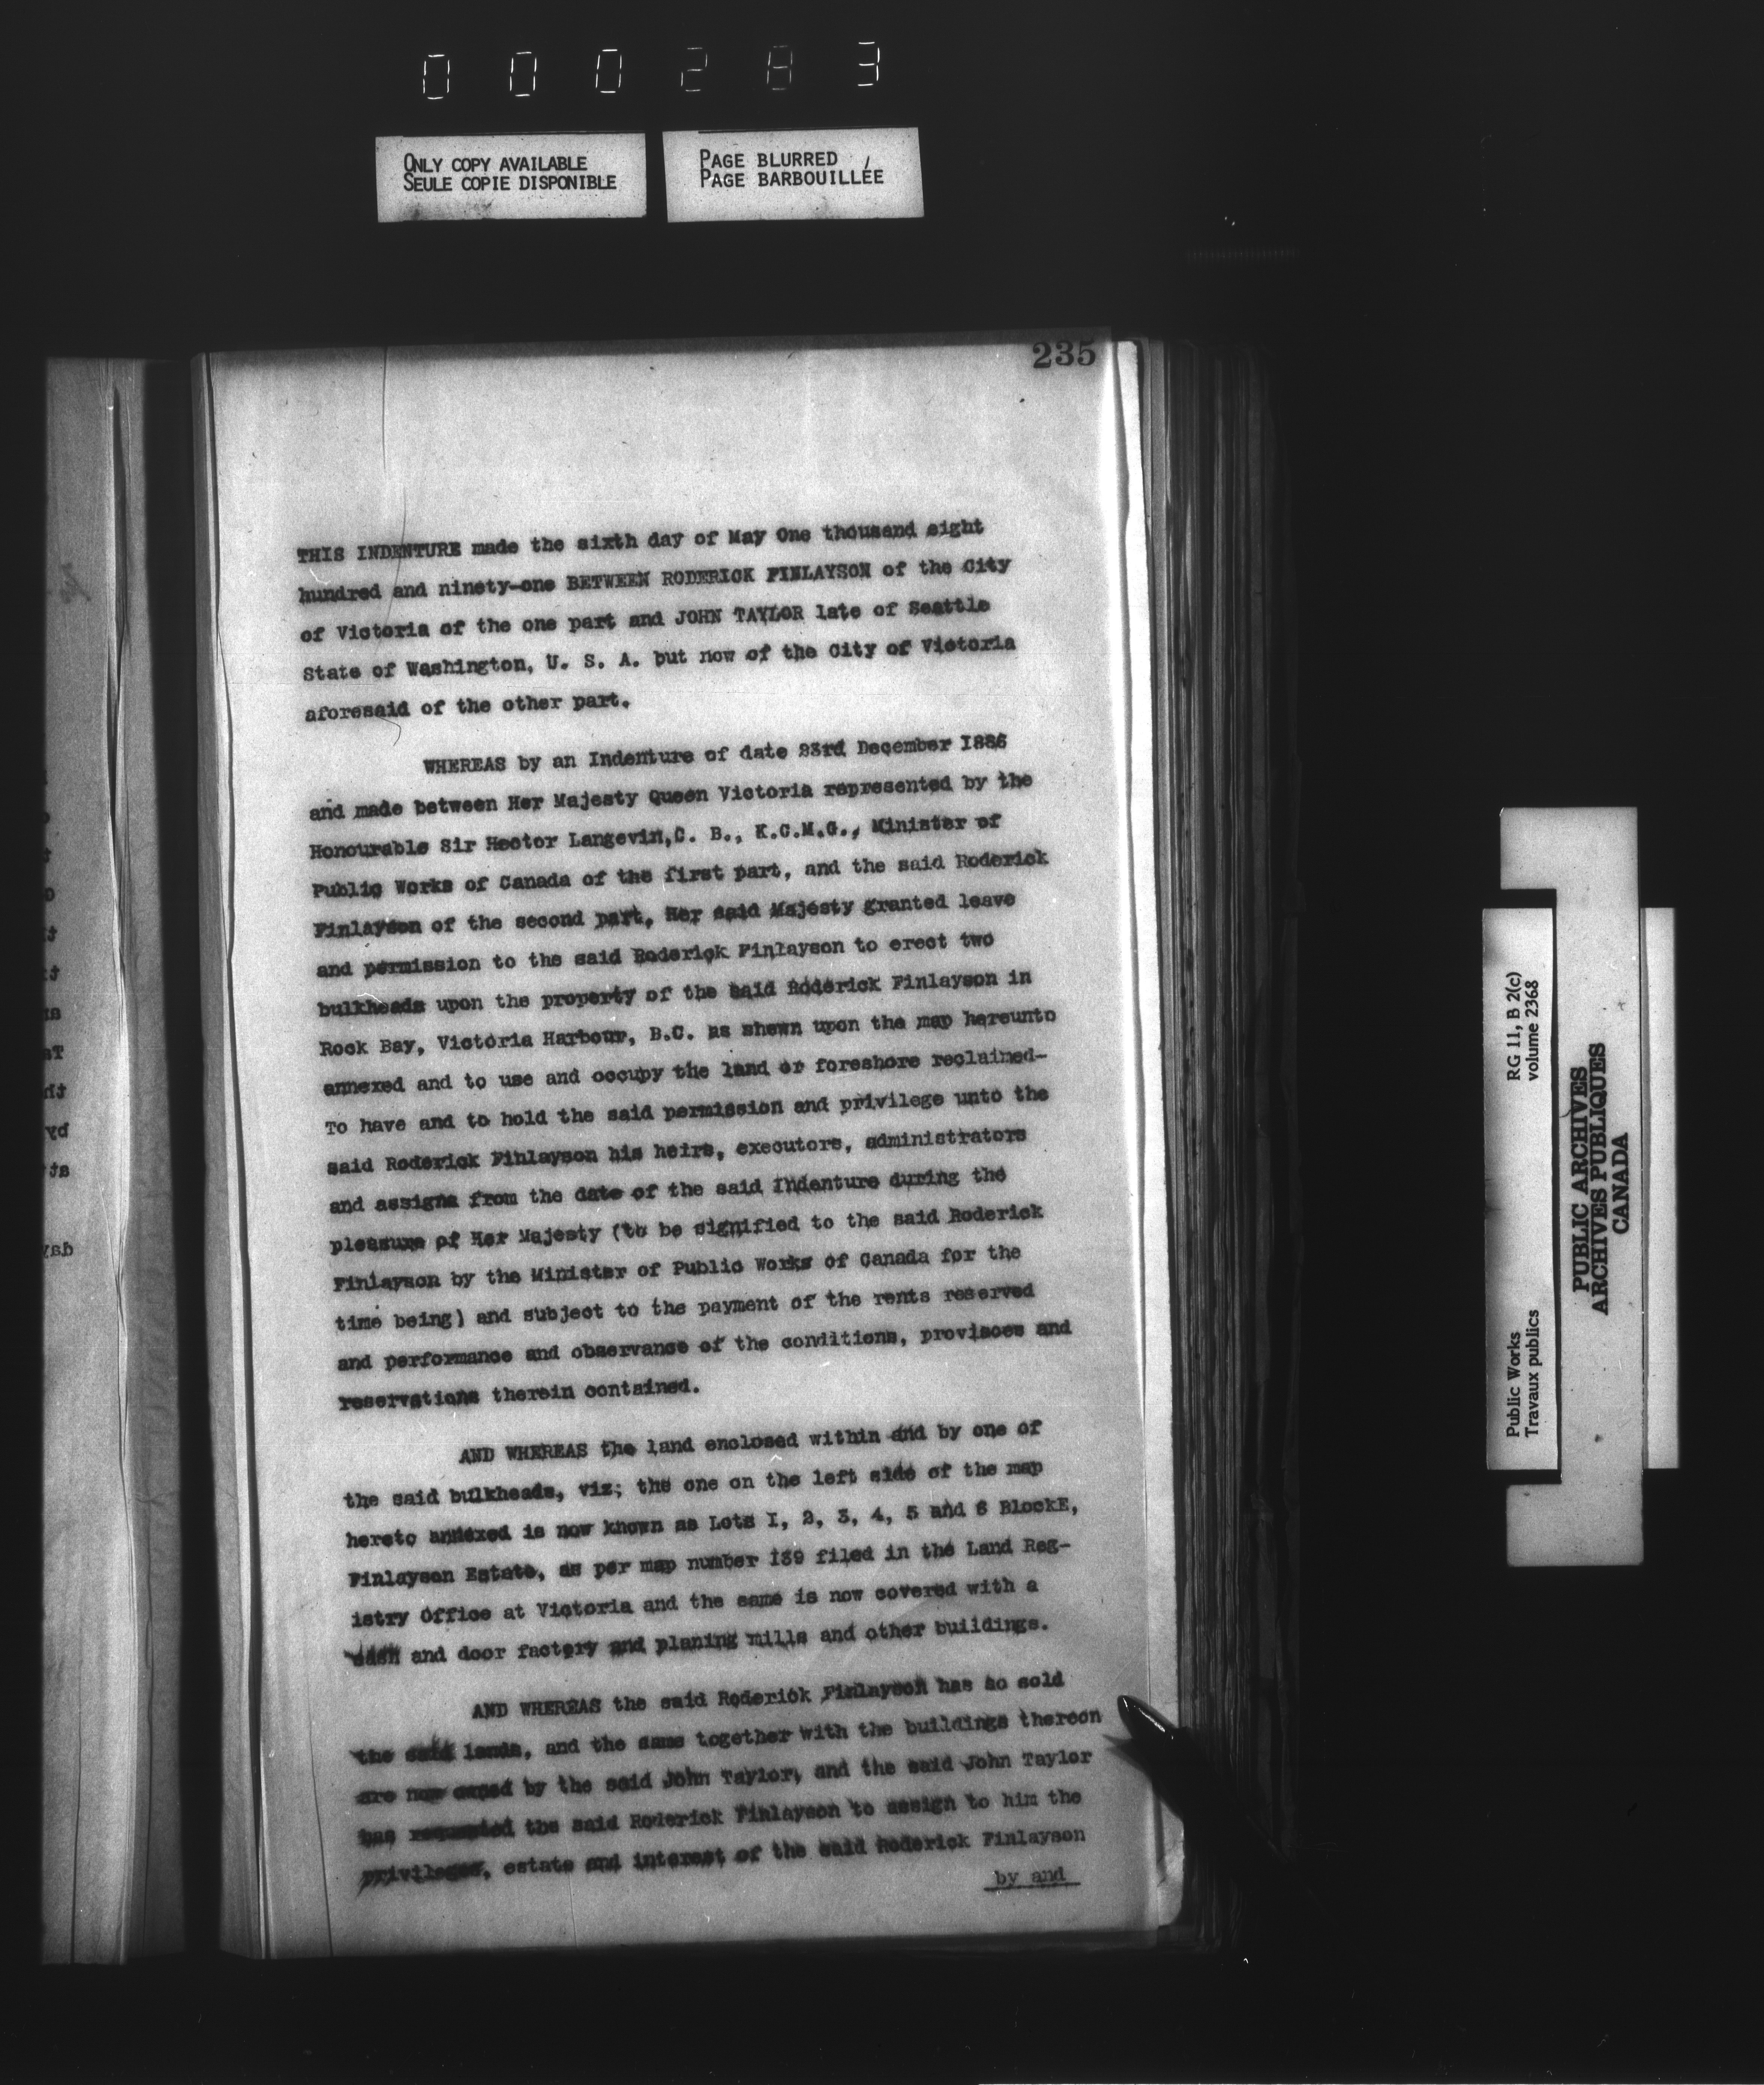 000283
ONLY COPY AVAILABLE
SEULE COPIE DISPONIBLE
PAGE BLURRED
PAGE BARBOUILLÉE
235
THIS INDENTURE made the sixth day of May One thousand eight
hundred and ninety-one BETWEEN RODERICK FINLAYSON of the City
of Victoria of the one part and JOHN TAYLOR late of Seattle
State of Washington, U. S. A. but now of the City of Victoria
aforesaid of the other part.
WHEREAS by an Indenture of date 23rd December I886
and made between Her Majesty Queen Victoria represented by the
Honourable Sir Hector Langevin,C. B., K.C.M.G., Minister of
Public Works of Canada of the first part, and the said Roderick
Finlayson of the second part, Her said Majesty granted leave
and permission to the said Roderick Finlayson to erect two
bulkheads upon the property of the said Roderick Finlayson in
Rock Bay, Victoria Harbour, B.C. as shewn upon the map hereunto
annexed and to use and occupy the land or foreshore reclaimed-
To have and to hold the said permission and privilege unto the
said Roderick Finlayson his heirs, executors, administrators
and assigns from the date of the said Indenture during the
pleasure of Her Majesty (to be signified to the said Roderick
Finlayson by the Minister of Public Works of Canada for the
time being) and subject to the payment of the rents reserved
and performance and observance of the conditions, provisoes and
reservations therein contained.
AND WHEREAS the land enclosed within and by one of
the said bulkheads, viz; the one on the left side of the map
hereto annexed is now known as Lots I, 2, 3, 4, 5 and 6 BlockE,
Finlayson Estate, as per map number I39 filed in the Land Reg-
istry Office at Victoria and the same is now covered with a
sash and door factory and planing mills and other buildings.
AND WHEREAS the said Roderick Finlayson has so sold
the said lands, and the same together with the buildings thereon
are now owned by the said John Taylor, and the said John Taylor
has requested the said Roderick Finlayson to assign to him the
privileges, estate and interest of the said Roderick Finlayson
by and
Public Works
Travaux publics
RG 11, B 2(c)
volume 2368
PUBLIC ARCHIVES
ARCHIVES PUBLIQUES
CANADA